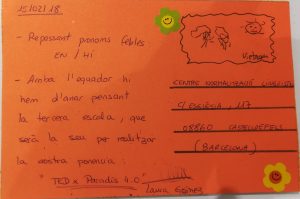 15/02/18
- Repassant pronoms febles
EN / HI
- Arriba l'equador hi
hem d'anar pensant
la tercera escola, que
serà la seu per realitzar
la nostra ponència:
"TEDx Paradís 4.0"
Laura Gómez
CENTRE NORMALITZACIÓ LINGÜÍSTICA
C/ ESGLÉSIA, 117
08860 CASTELLDEFELS
(BARCELONA)